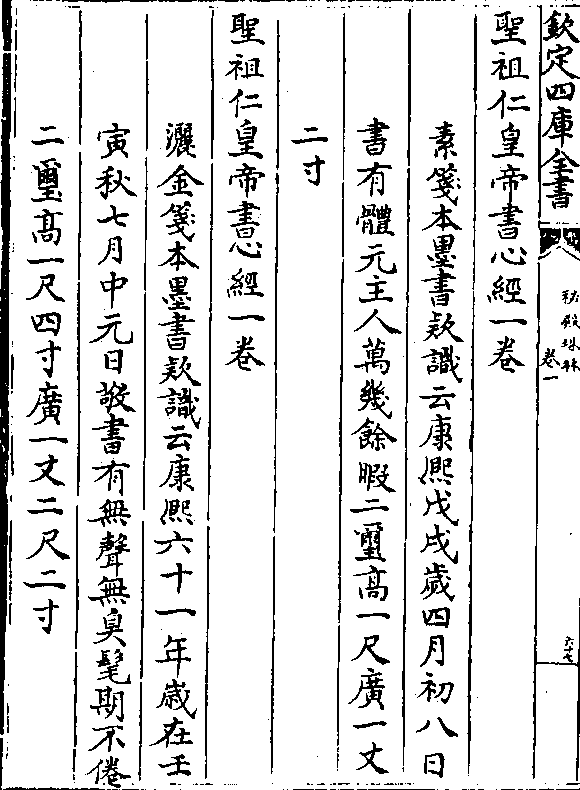 欽定四庫全書
秘殿珠林
卷一
六十七
聖祖仁皇帝書心經一卷
素箋本墨書欵識云康熙戊戌歲四月初八日
書有體元主人萬幾餘暇二璽高一尺廣一丈
二寸
聖祖仁皇帝書心經一卷
灑金箋本墨書欵識云康熙六十一年歲在壬
寅秋七月中元日敬書有無聲無臭髦期不倦
二璽高一尺四寸廣一丈二尺二寸